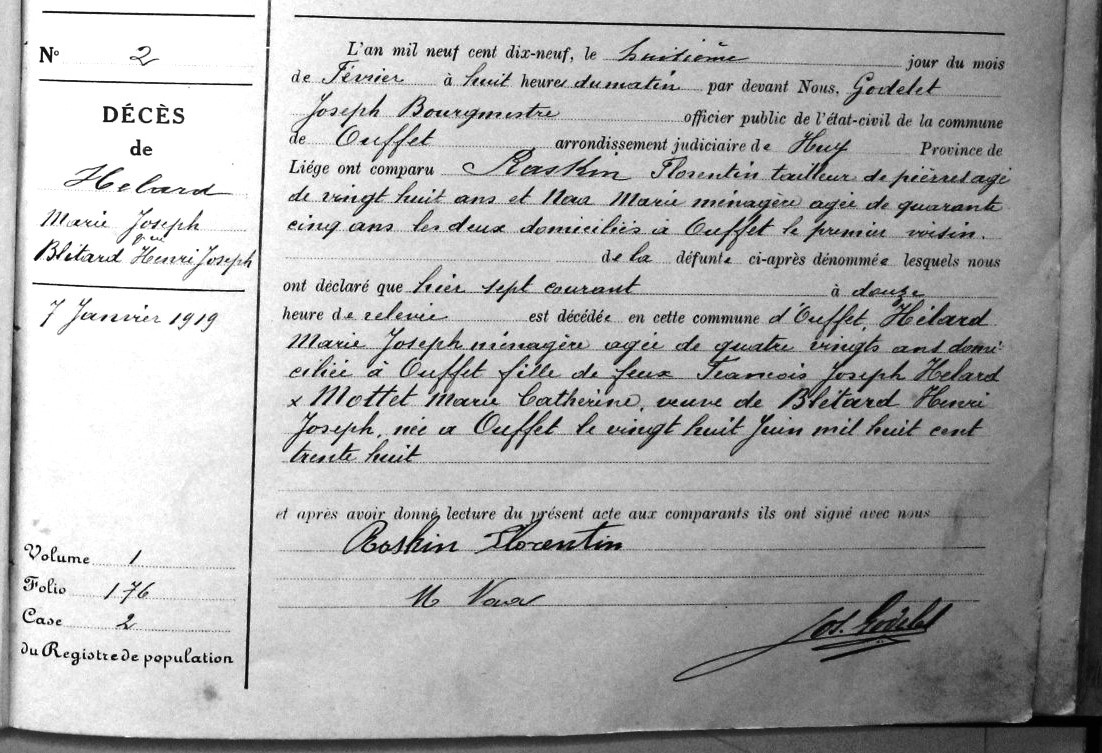 N° 2
DÉCÈS
de
Helard
Marie Joseph
Blétard Henri Joseph
7 Janvier 1919
Volume 1
Folio 176
Case 2
du Registre de population
L'an mil neuf cent dix-neuf, le huitième jour du mois
de Février à huit heures du matin par devant Nous, Godelet
Joseph Bourgmestre officier public de l'état-civil de la commune
de Ouffet arrondissement judiciaire de Huy Province de
Liége ont comparu Raskin Florentin tailleur de pierres agé
de vingt huit ans et Marie ménagère agée de quarante
cinq ans les deux domiciliés à Ouffet le premier voisin.
de la défunte ci-après dénommée lesquels nous
ont déclaré que hier sept courant à douze
heure de relevée est décédée en cette commune d'Ouffet, Hélard
Marie Joseph ménagère agée de quatre vingts ans domi
ciliée à Ouffet fille de feux Francois Joseph Helard
x Mottet Marie Catherine, veuve de Blétard Henri
Joseph, née a Ouffet le vingt huit Juin mil huit cent
trente huit
et après avoir donné lecture du présent acte aux comparants ils ont signé avec nous
Raskin Florentin
M
Jos. Godelet